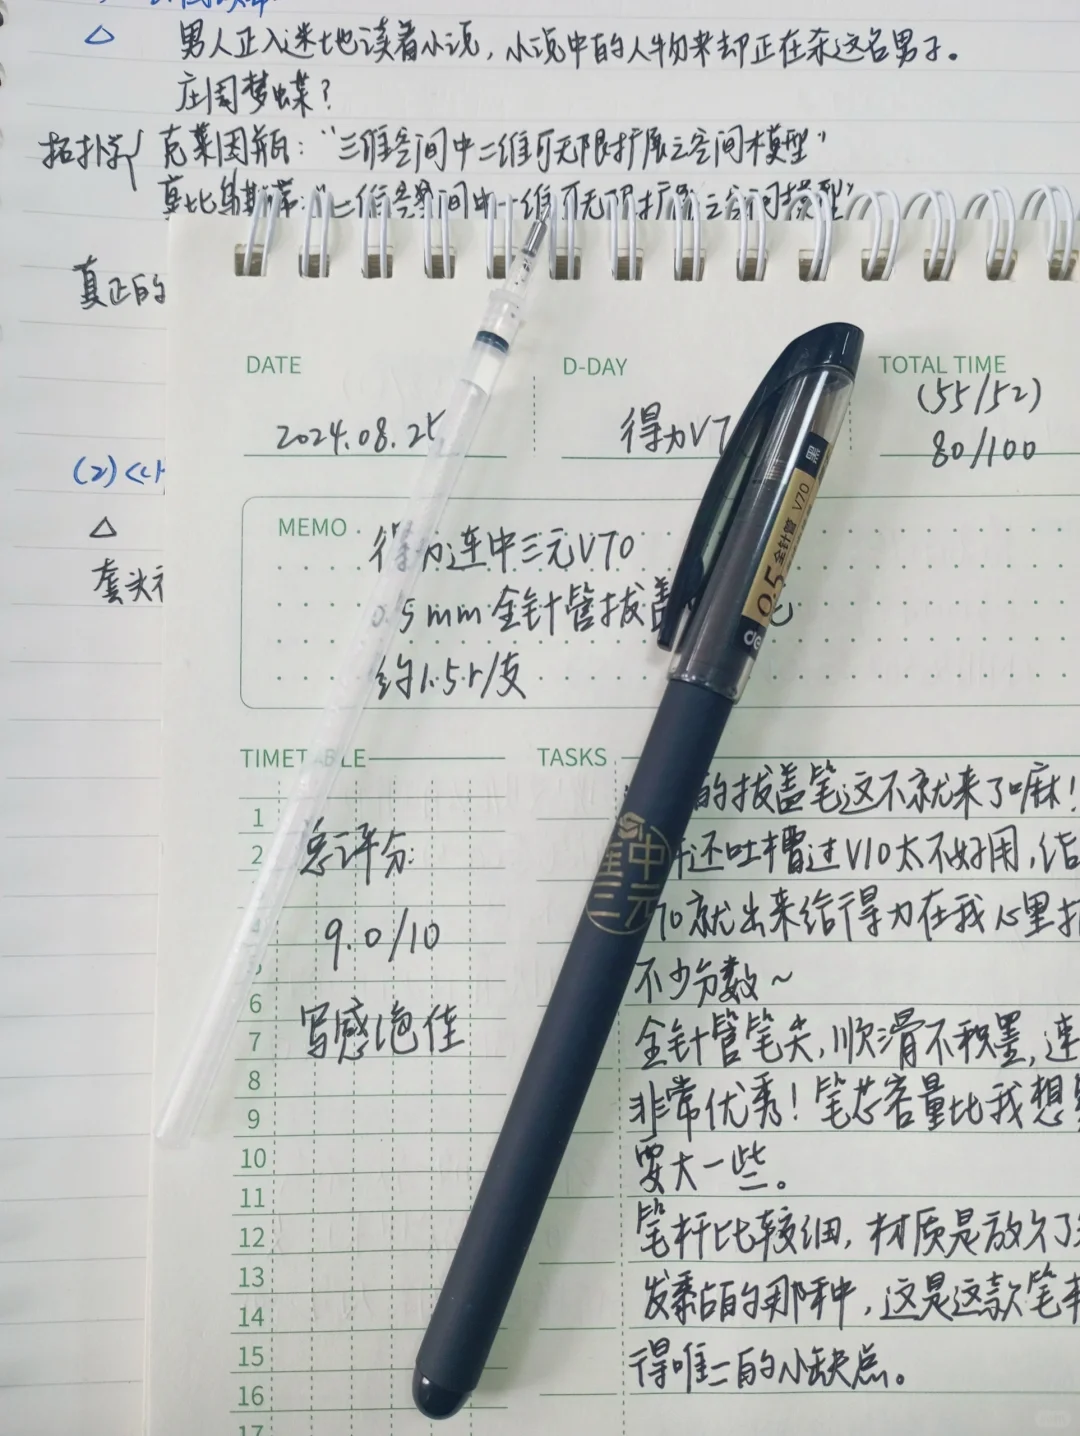 △ 男人正入迷地读着小说，小说中的人物来却正在杀这名男子。
庄周梦蝶？
拓扑学{ 克莱因瓶：“三维空间中二维可无限扩展之空间模型”
莫比乌斯带：“二维空间中一维可无限扩展之空间模型”
真正的
DATE D-DAY TOTAL TIME
(55/52)
2024.08.25 得力V7 80/100
(2)<
△
MEMO
得力连中三元V70
套头
0.5mm全针管拔盖
约1.5r/支
黑
V70
全针管
0.5
de
连中三元
TIMETABLE TASKS
的拔盖笔这不就来了嘛！
1
2
总评分：
还吐槽过V10太不好用，结
9.0/10
70就出来给得力在我心里
不少分数～
写感绝佳
全针管笔尖，顺滑不积墨，速
非常优秀！笔芯容量比我想
要大一些。
笔杆比较细，材质是放久了
发黏的那种，这是这款笔
得唯二的小缺点。
4
5
6
7
8
9
10
11
12
13
14
15
16
17